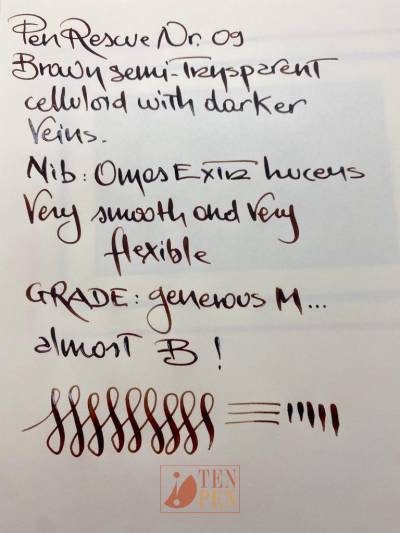 Pen Rescue Nr. 09
Brown semi-Transparent
celluloid with darker
veins.
Nib: Omas Extra Lucens
Very smooth and very
flexible
GRADE: generous M...
almost B!
TEN
PEN